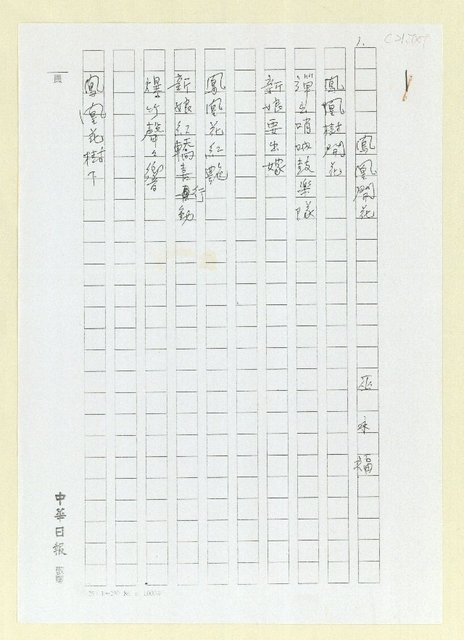 1.
鳳凰開花
巫永福
鳳凰樹開花
彈出哨吶鼓樂隊
新娘要出嫁
鳳凰花紅艷
新娘紅轎喜行動
爆竹聲々響
鳳凰花樹下
中華日報